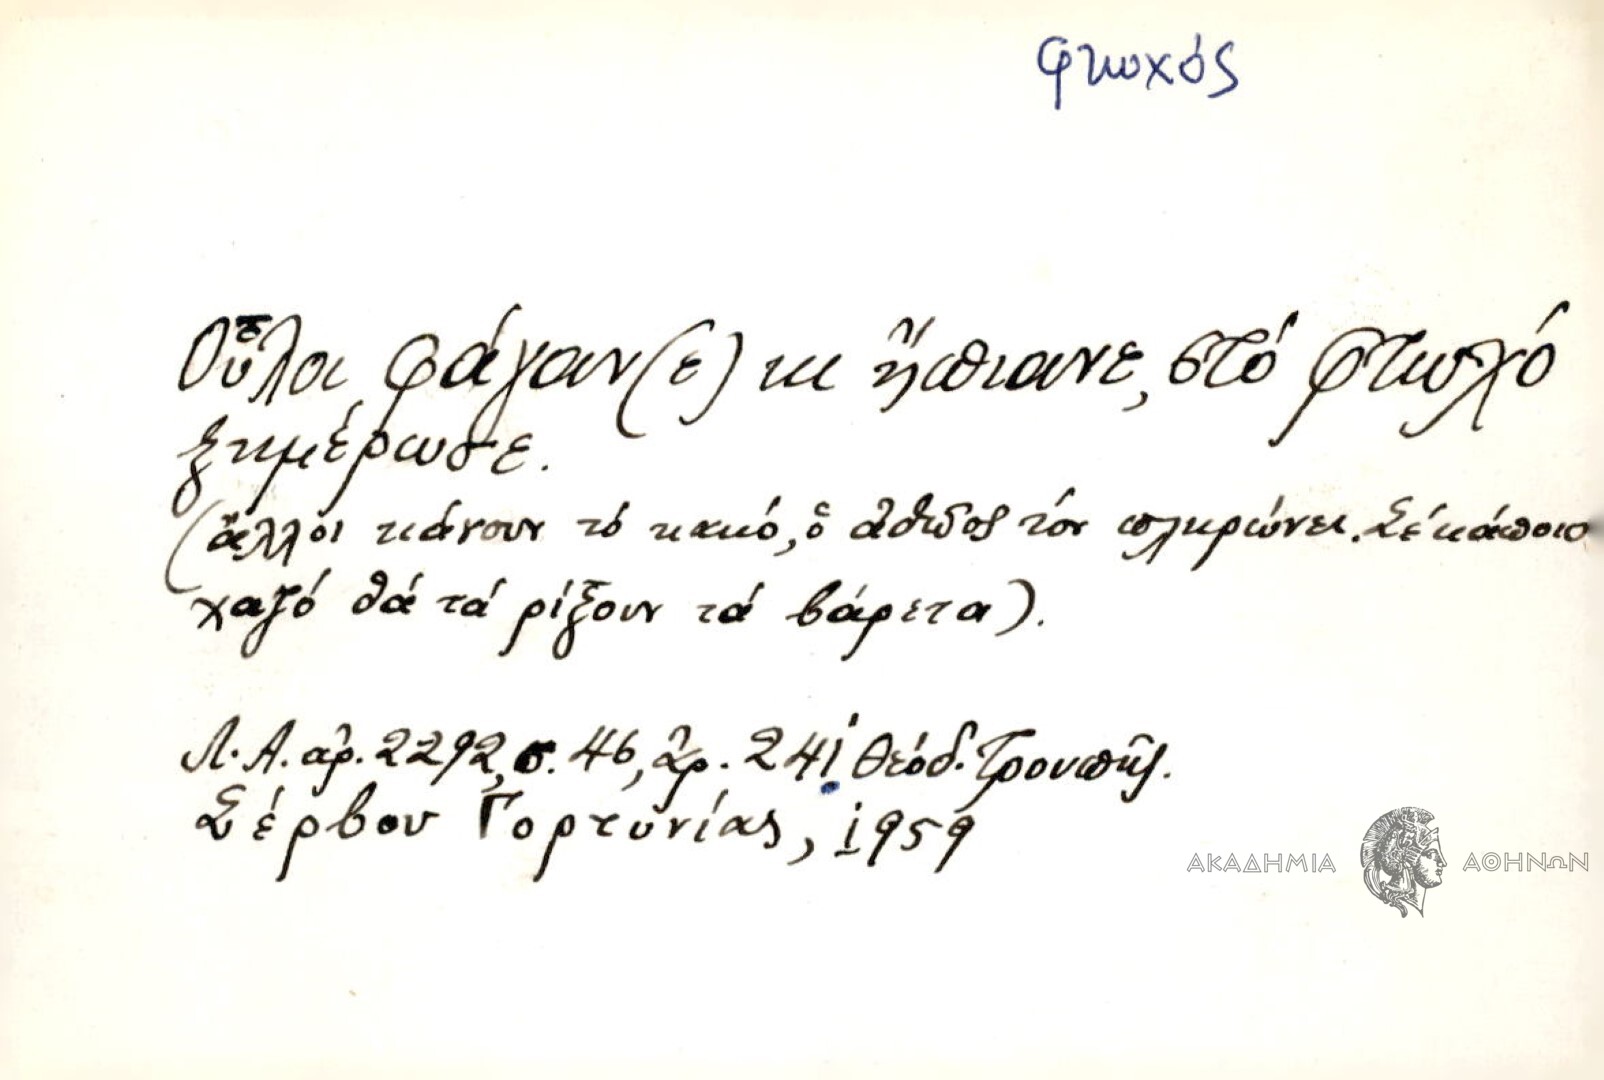 φτωχός
Οὗλοι φάγαν(ε) κι ἤπιανε, στό φτωχό
ξημέρωσε.
(ἄλλοι κάνουν τό κακό, ὁ ἀθῶος τόν πληρώνει. Σέ κάποιο
χαζό θά τά ρίξουν τά βάρετα).
Λ.Α. ἀρ. 2292, σ. 46, ἀρ. 241 Θεόδ. Τρουπῆς.
Σέρβου Γορτυνίας, 1959
ΑΚΑΔΗΜΙΑ ΑΘΗΝΩΝ